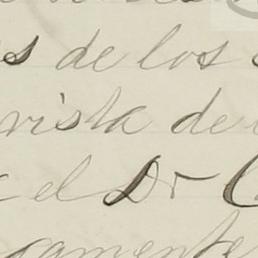 s de los
vista de
el Dr C
camente